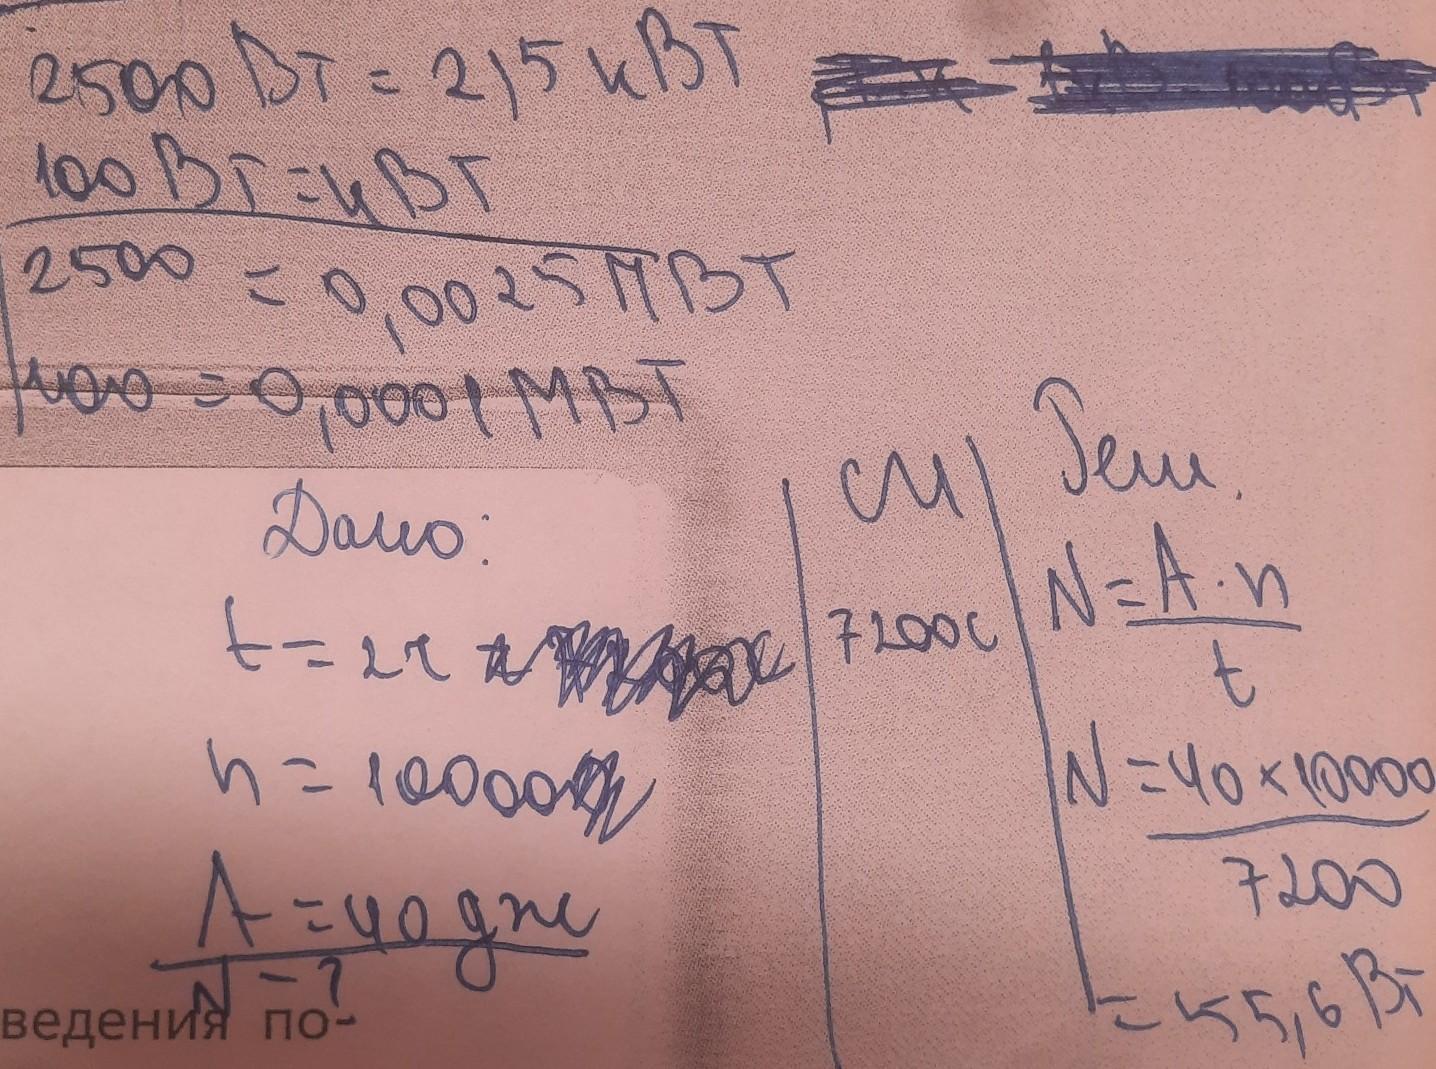 2500 Вт = 2,5 кВт
100 Вт = кВт
2500 = 0,0025 МВт
100 = 0,0001 МВт
Дано:
t = 2ч
n = 10000
A = 40 дж
N - ?
СИ
7200с
Реш.
N = A · n
t
N = 40 × 10000
7200
= 55,6 Вт
ведения по-